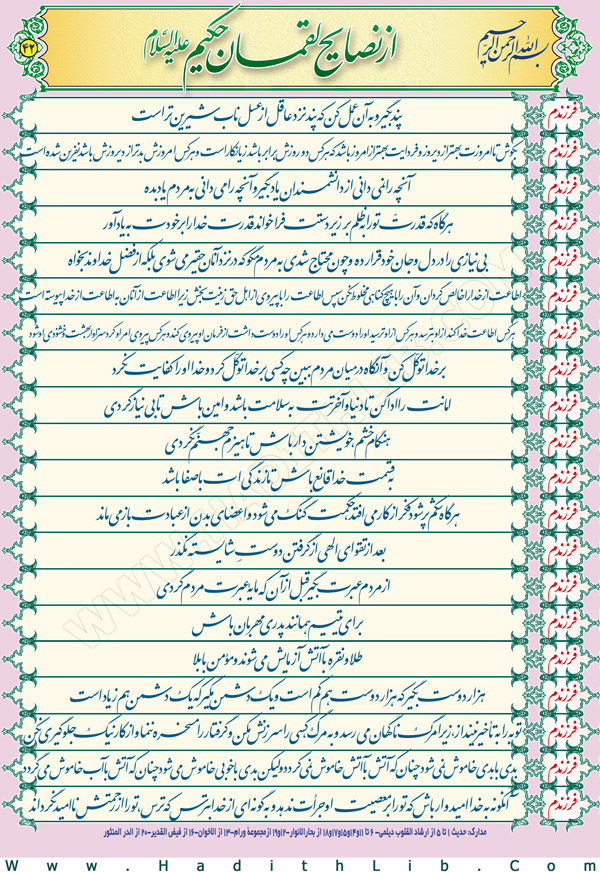 بسم الله الرحمن الرحیم
از نصایح لقمان حکیم علیه السلام
۴۲
فرزندم پند بگیر و به آن عمل کن که پند نزد عاقل از عسل ناب شیرین تر است
فرزندم بکوش تا امروزت بهتر از دیروز و فردایت بهتر از امروز باشد که هرکس دو روزش برابر باشد زیانکار است و هرکس امروزش بدتر از دیروزش باشد نفرین شده است
فرزندم آنچه را نمی دانی از دانشمندان یاد بگیر و آنچه را می دانی به مردم یاد بده
فرزندم هرگاه که قدرتت تو را به ظلم بر زیر دستت فرا خواند قدرت خدا را بر خودت به یاد آور
فرزندم بی نیازی را در دل و جان خود قرار ده و چون محتاج شدی به مردم مگو که در نزد آنان حقیر می شوی بلکه از فضل خداوند بخواه
فرزندم اطاعت از خدا را خالص گردان و آن را با هیچ گناهی مخلوط نکن سپس اطاعت را با پیروی از اهل حق زینت بخش زیرا اطاعت از آنان به اطاعت از خدا پیوسته است
فرزندم هرکس اطاعت خدا کند از او بترسد و هرکس از او ترسید او را دوست می دارد و هرکس او را دوست داشت از فرمان او پیروی کند و هرکس پیروی امر او کرد سزاوار بهشت و خشنودی او شود
فرزندم بر خدا توکل کن و آنگاه در میان مردم ببین چه کسی بر خدا توکل کرد و خدا او را کفایت نکرد
فرزندم امانت را ادا کن تا دنیا و آخرتت به سلامت باشد و امین باش تا بی نیاز گردی
فرزندم هنگام خشم خویشتن دار باش تا هیزم جهنم نگردی
فرزندم به قسمت خدا قانع باش تا زندگی ات با صفا باشد
فرزندم هرگاه شکم پر شود فکر از کار می افتد حکمت گنگ می شود و اعضای بدن از عبادت باز می ماند
فرزندم بعد از تقوای الهی از گرفتن دوست شایسته نگذر
فرزندم از مردم عبرت بگیر قبل از آن که مایه عبرت مردم گردی
فرزندم برای یتیم همانند پدری مهربان باش
فرزندم طلا و نقره با آتش آزمایش می شوند و مؤمن با بلا
فرزندم هزار دوست بگیر که هزار دوست هم کم است و یک دشمن مگیر که یک دشمن هم زیاد است
فرزندم توبه را به تأخیر مینداز زیرا مرگ ناگهان می رسد و به مرگ کسی را سرزنش مکن و گرفتار را مسخره ننما و از کار نیک جلوگیری نکن
فرزندم بدی با بدی خاموش نمی شود چنان که آتش با آتش خاموش نمی گردد ولیکن بدی با خوبی خاموش می شود چنان که آتش با آب خاموش می گردد
فرزندم آنگونه به خدا امیدوار باش که تو را بر معصیت او جرأت ندهد و به گونه ای از خدا بترس که ترس، تو را از رحمتش ناامید نگرداند
مدارک: حدیث ۱ تا ۵ از ارشاد القلوب دیلمی- ۶ تا ۱۱و۱۴و۱۵و۱۷و۱۸ از بحارالانوار- ۱۲و۱۹ ازمجموعۀ ورام- ۱۳ از الاخوان- ۱۶ از فیض القدیر- ۲۰ از الدر المنثور
www.HadithLib.Com